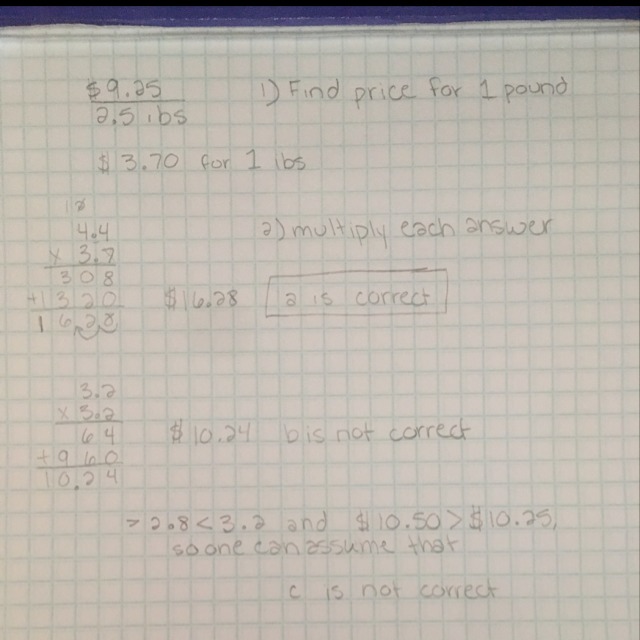 $9.25
2.5 lbs
1) Find price for 1 pound
$3.70 for 1 lbs
2) multiply each answer
12
4.4
x 3.7
308
+1320
1628
$16.28
a is correct
3.2
x 3.2
64
+960
10.24
$10.24 b is not correct
> 2.8 < 3.2 and $10.50 > $10.25,
so one can assume that
c is not correct